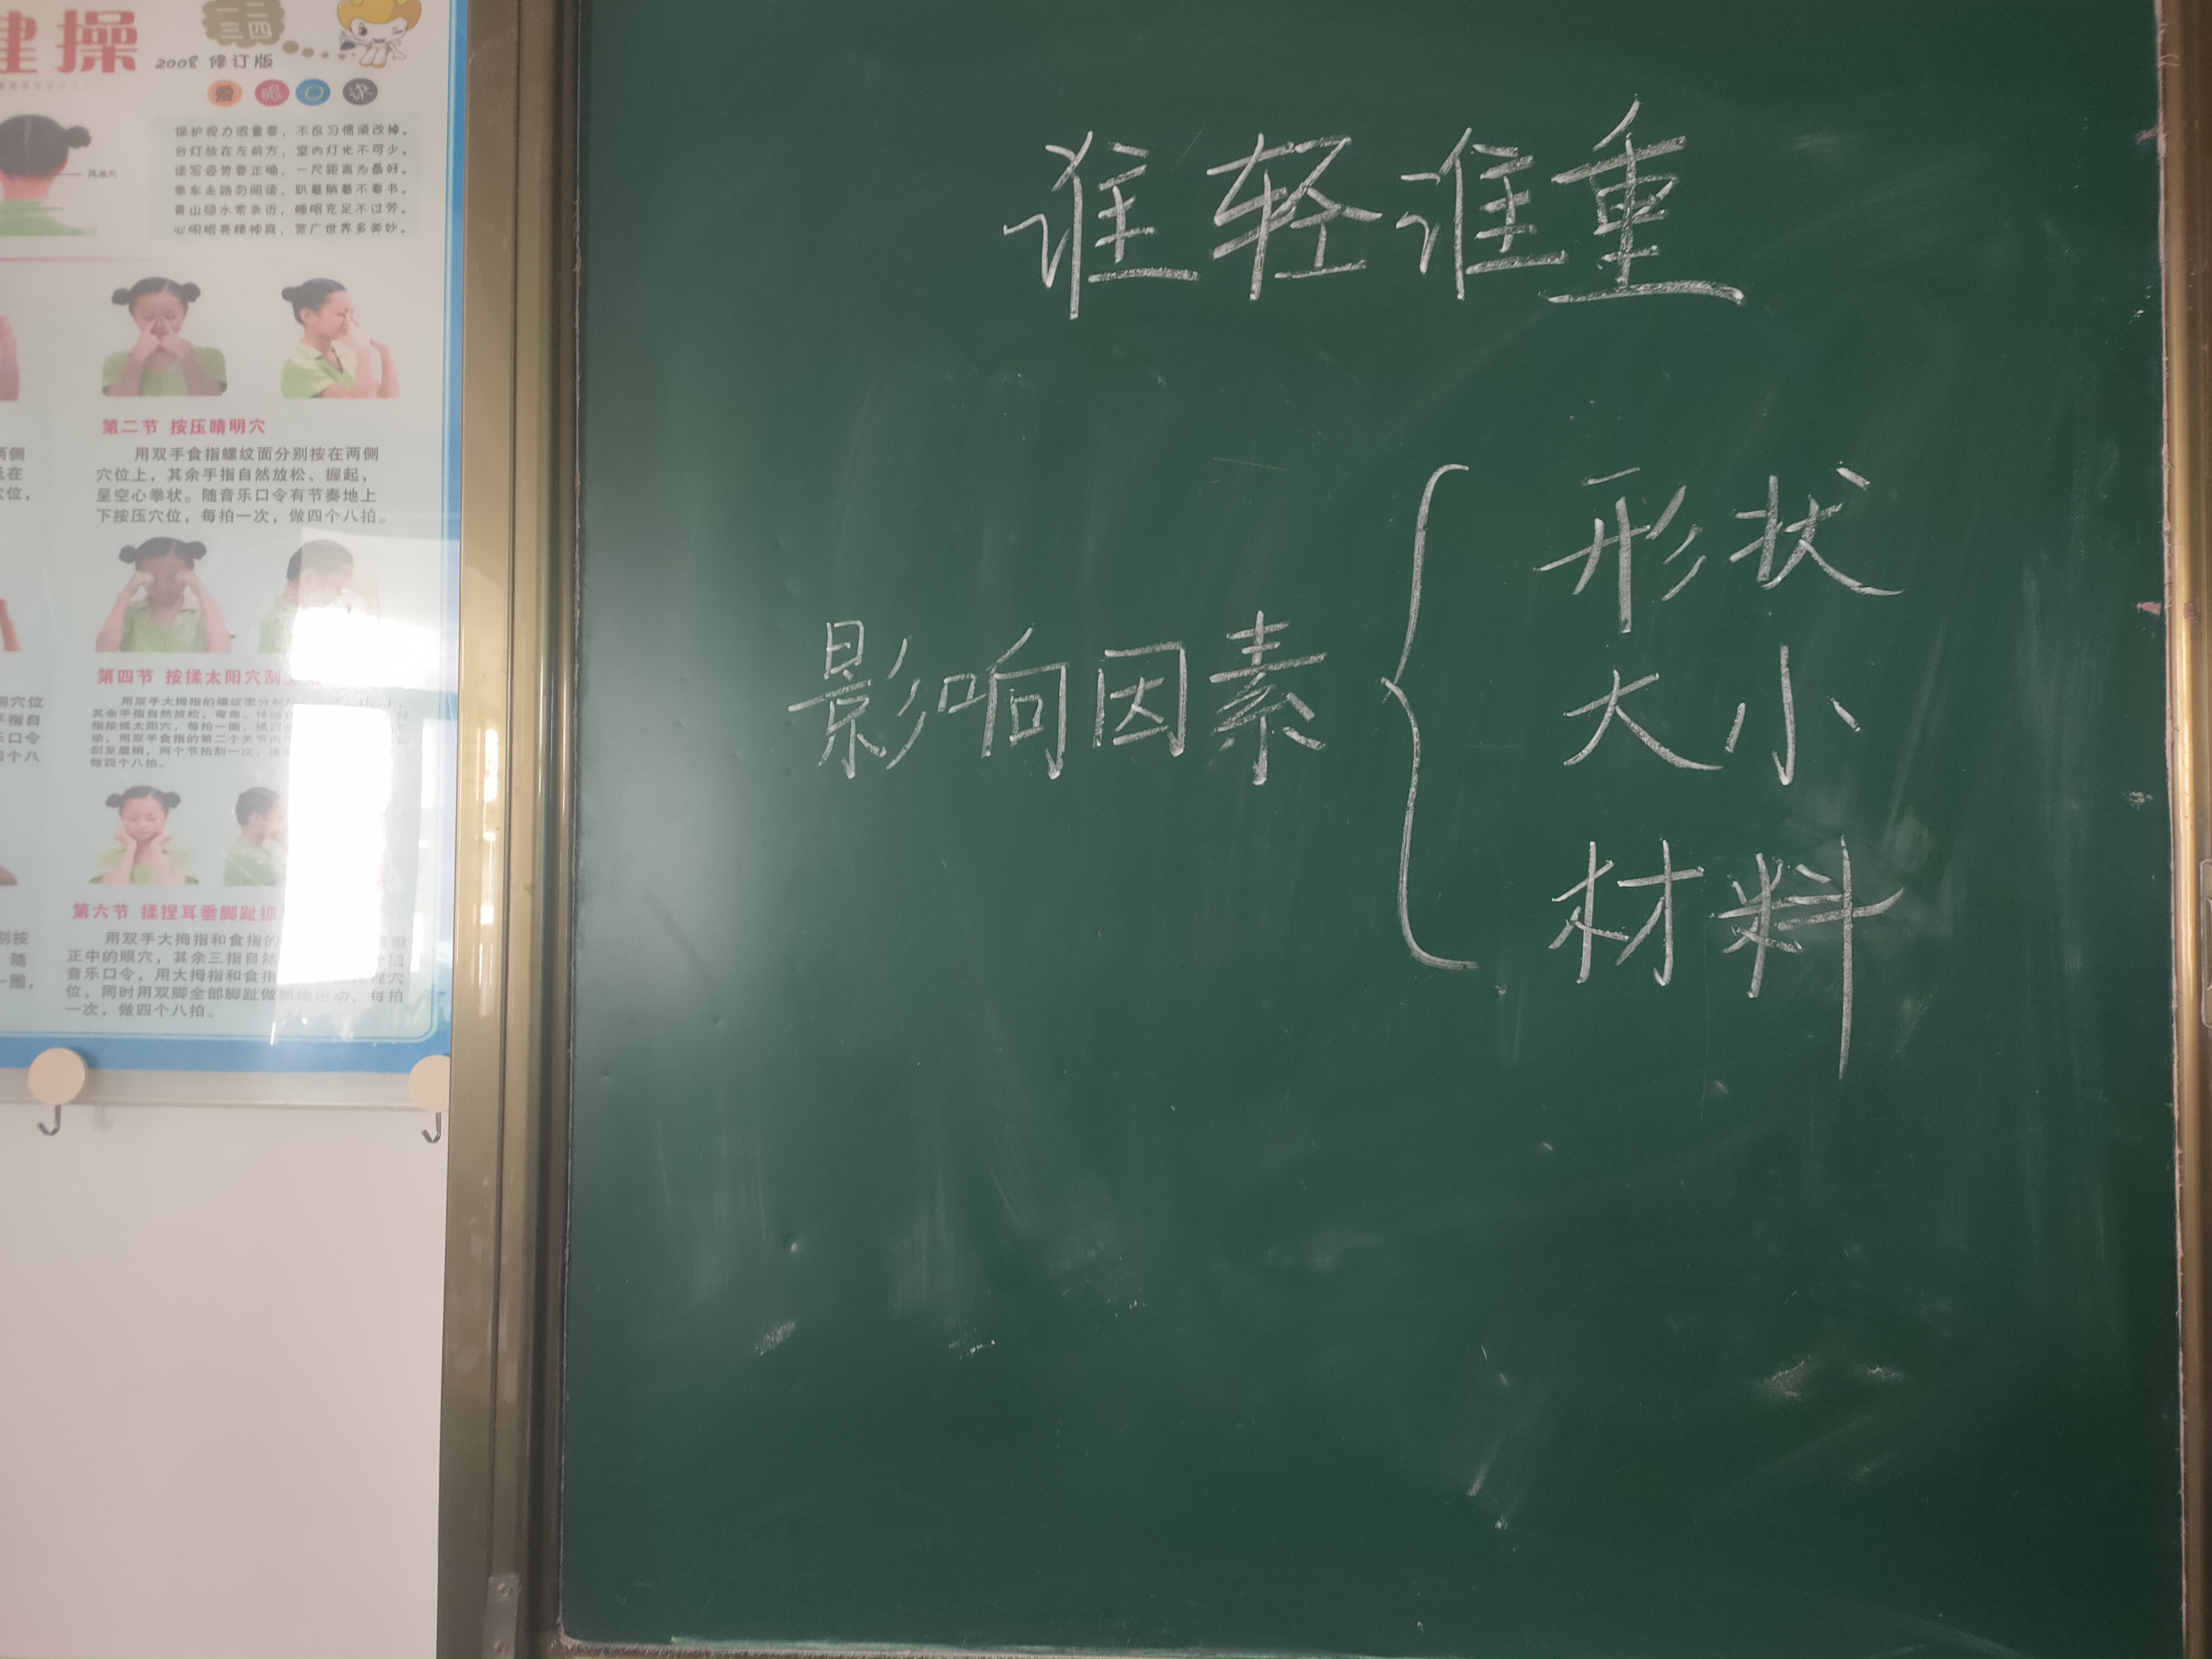 健操
二三四
2008 修订版
爱眼口诀
保护视力很重要，不良习惯须改掉。
台灯放在左前方，室内灯光不可少。
读写姿势要正确，一尺距离为最好。
乘车走路勿阅读，趴着躺着不看书。
青山绿水常亲近，睡眠充足不过劳。
心明眼亮精神爽，宽广世界多美妙。
风池穴
第二节 按压睛明穴
用双手食指螺纹面分别按在两侧
穴位上，其余手指自然放松、握起，
呈空心拳状。随音乐口令有节奏地上
下按压穴位，每拍一次，做四个八拍。
第四节 按揉太阳穴刮
用双手大拇指的螺纹面分别
其余手指自然放松、弯曲。
指按揉太阳穴，每拍一圈，揉四
动，用双手食指的第二个关节内
刮至眉梢，两个节拍刮一次，
做四个八拍。
第六节 揉捏耳垂脚趾抓
用双手大拇指和食指的
正中的眼穴，其余三指自然
音乐口令，用大拇指和食指 揉捏穴
位，同时用双脚全部脚趾做抓地运动，每拍
一次，做四个八拍。
两侧
在
穴位，
侧穴位
手指自
乐口令
四个八
别按
随
一圈，
谁轻谁重
影响因素
形状
大小
材料